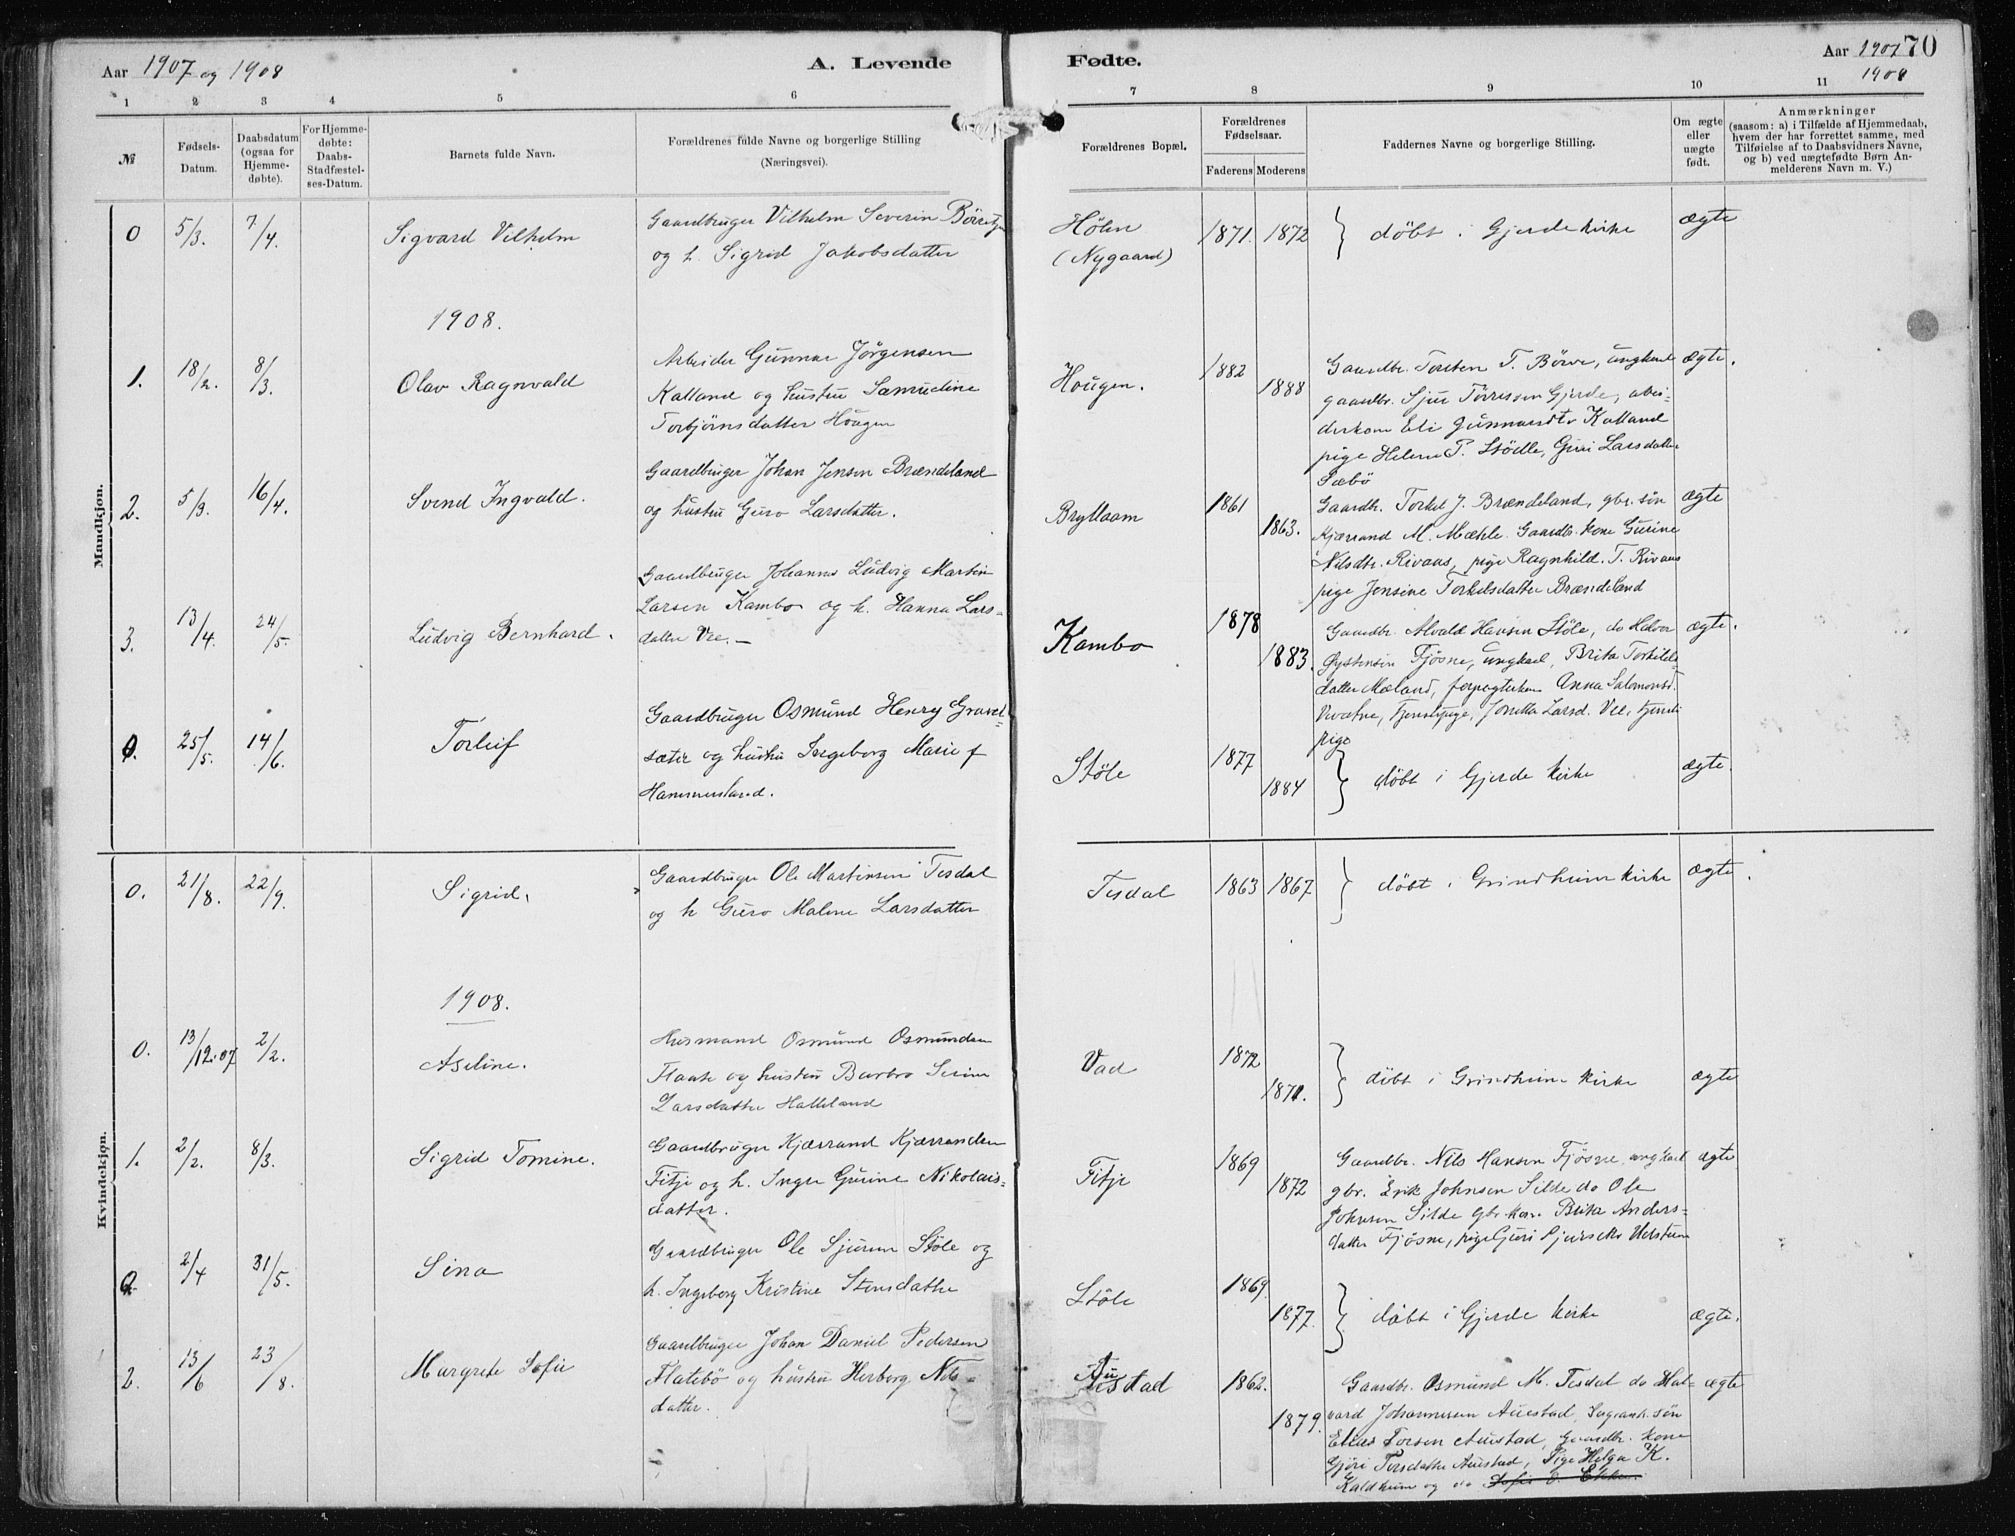 Aar 1907 og 1908
A. Levende
Fødte.
Aar 1907
1908
70
1 2 3 4 5 6 7 8 9 10 11
№
Fødsels-
Datum.
Daabsdatum
(ogsaa for
Hjemme-
døbte).
For Hjemme-
døbte:
Daabs-
Stadfæstel-
ses-Datum.
Barnets fulde Navn.
Forældrenes fulde Navne og borgerlige Stilling
(Næringsvei).
Forældrenes Bopæl.
Forældrenes
Fødselsaar.
Faderens Moderens
Faddernes Navne og borgerlige Stilling.
Om ægte
eller
uægte
født.
Anmærkninger
(saasom: a) i Tilfælde af Hjemmedaab,
hvem der har forrettet samme, med
Tilføielse af to Daabsvidners Navne,
og b) ved uægtefødte Børn An-
melderens Navn m. V.)
Mandkjøn.
0 5/3. 7/4. Sigvard Vilhelm
Gaardbruger Vilhelm Severin
og h. Sigrid Jakobsdatter
Hölen
(Nygaard)
1871. 1872
döbt i Gjerde kirke
ægte
1908.
1. 18/2. 8/3. Olav Ragnvald
Arbeider Gunnar Jörgensen
Kalland og hustru Samueline
Torbjörnsdatter Hougen
Hougen.
1882
1888
Gaardbr. Torsten T. Börve, ungkarl
gaardbr. Sjur Törresson Gjerde, abei-
derkone Eli Gunnarsdtr Kalland
pige Helene P. Stödle, Guri Larsdatter
Sæbö
ægte.
2. 5/3. 16/4. Svend Ingvald.
Gaardbruger Johan Jensen Brændeland
og hustru Guro Larsdatter.
Bryllaam
1861
1863.
Gaardbr. Torkel J. Brændeland, gbr. sön
Kjærrand M. Mæhle. Gaardb. kone Gurine
Nilsdtr. Rivaas, pige Ragnhild. T. Rivaas
pige Jensine Torkelsdatter Brændeland
ægte
3. 13/4. 24/5. Ludvig Bernhard.
Gaardbruger Johannes Ludvig Martin
Larsen Kambo og h. Hanna Lars-
datter Vee. —
Kambo
1878
1883.
Gaardbr. Alvald Hansen Stöle, do Halvor
Øystensen Fjösne, ungkarl, Brita Torkilds-
datter Mæland, forpagterkone Anna Salomonsd.
Tjenestpige, Larsd. Vee, tjeneste
pige
ægte.
0. 25/5. 14/6. Torleif
Gaardbruger Osmund Henry Gravel-
sæter og hustru Ingeborg Marie f
Hammersland.
Stöle
1877
1884
döbt i Gjerde kirke
ægte.
Kvindekjøn.
0. 21/8. 22/9. Sigrid.
Gaardbruger Ole Martinsen Tesdal
og h Guro Malene Larsdatter
Tesdal
1863 1867.
döbt i Grindheim kirke
ægte.
1908.
0. 13/12.07 2/2. Aseline.
Husmand Osmund Osmundsen
Flaate og hustru Barbro Serine
Larsdatter Halleland
Vad
1872
1871.
döbt i Grindheim kirke
ægte
1. 2/2. 8/3. Sigrid Tomine.
Gaardbruger Kjærrand Kjærrandsen
Fitje og h. Inger Gurine Nikolais-
datter.
Fitje
1869
1872
Gaardbr. Nils Hansen Fjösne, ungkarl
gbr. Erik Johnsen Silde do Ole
Johnsen Silde gbr. kone Brita Anders-
datter Fjösne, pige Guri Sjursdtr
ægte
0. 2/4 31/5. Sina
Gaardbruger Ole Sjursen Stöle og
h. Ingeborg Kristine Stensdatter
Stöle
1869.
1877.
döbt i Gjerde kirke
ægte.
2. 13/6 23/8. Margrete Sofie
Gaardbruger Johan Daniel Pedersen
Flatebö og hustru Herborg Nils-
datter.
Austad
1862.
1879.
Gaardbr. Osmund M. Tesdal do Hal-
vard Johannesen Austad, sön
Elias Torsen Austad, Gaardbr. kone
Gjöri Torsdatter Austad, Pige Helga K.
Kaldheim og do Sofie
ægte